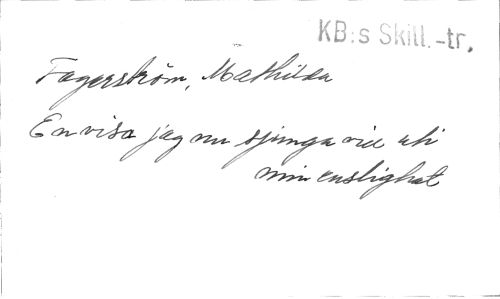 KB:s Skill.-tr.
Fagerström, Mathilda
En visa jag nu sjunga vill uti
min enslighet